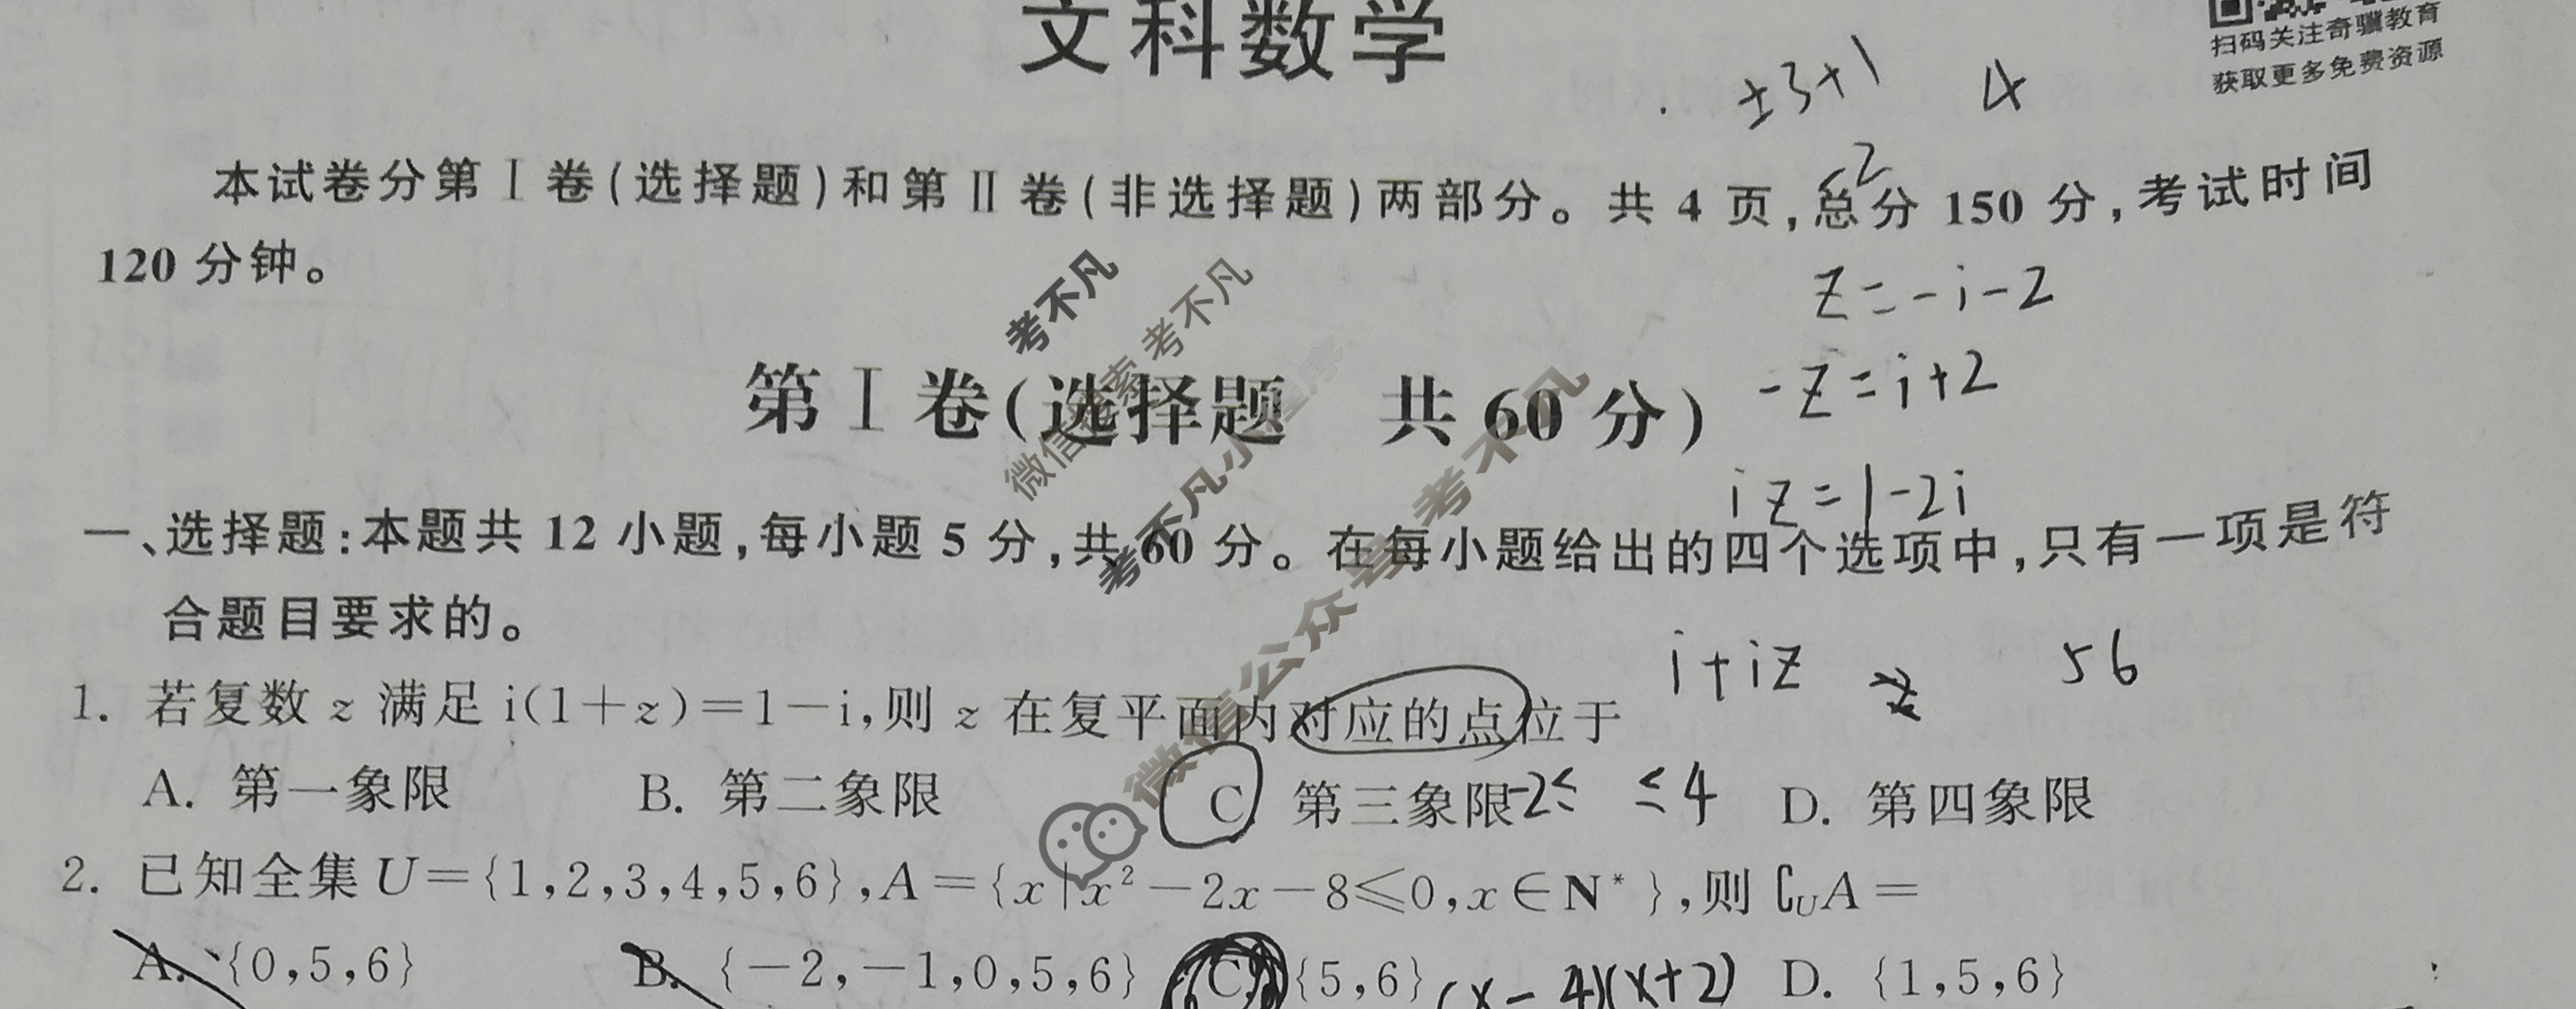 文科数学
扫码关注奇骥教育
获取更多免费资源
±3+1 4
本试卷分第Ⅰ卷(选择题)和第Ⅱ卷(非选择题)两部分。共 4 页,总分 150 分,考试时间
120 分钟。
z=-i-2
-z=i+2
第Ⅰ卷(选择题 共 60 分)
iz=1-2i
一、选择题:本题共 12 小题,每小题 5 分,共 60 分。在每小题给出的四个选项中,只有一项是符
合题目要求的。
i+iz
56
1. 若复数 z 满足 i(1+z)=1-i,则 z 在复平面内对应的点位于
A. 第一象限 B. 第二象限 C. 第三象限 D. 第四象限
-2≤ ≤4
2. 已知全集 U={1,2,3,4,5,6},A={x|x²-2x-8≤0,x∈N*},则∁UA=
A. {0,5,6} B. {-2,-1,0,5,6} C. {5,6} D. {1,5,6}
(x-4)(x+2)
考不凡
微信搜索 考不凡
考不凡小程序
微信公众号 考不凡